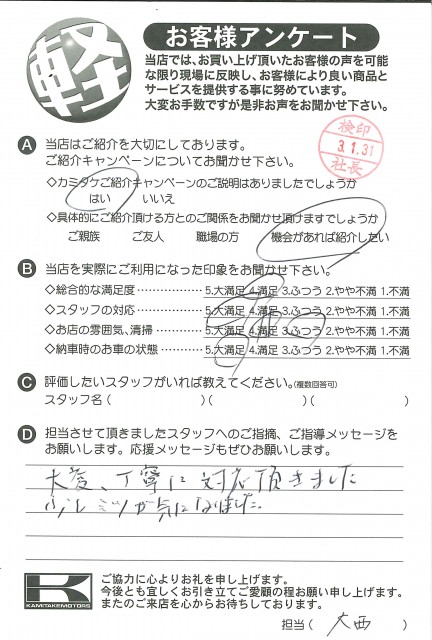 軽
お客様アンケート
当店では、お買い上げ頂いたお客様の声を可能
な限り現場に反映し、お客様により良い商品と
サービスを提供する事に努めています。
大変お手数ですが是非お声をお聞かせ下さい。
検印
3.1.31
社長
A 当店はご紹介を大切にしております。
ご紹介キャンペーンについてお聞かせ下さい。
◇カミタケご紹介キャンペーンのご説明はありましたでしょうか
はい いいえ
◇具体的にご紹介頂ける方とのご関係をお聞かせ頂けますでしょうか
ご親族 ご友人 職場の方 機会があれば紹介したい
B 当店を実際にご利用になった印象をお聞かせ下さい。
◇総合的な満足度………………5.大満足 4.満足 3.ふつう 2.やや不満 1.不満
◇スタッフの対応………………5.大満足 4.満足 3.ふつう 2.やや不満 1.不満
◇お店の雰囲気、清掃…………5.大満足 4.満足 3.ふつう 2.やや不満 1.不満
◇納車時のお車の状態…………5.大満足 4.満足 3.ふつう 2.やや不満 1.不満
C 評価したいスタッフがいれば教えてください。(複数回答可)
スタッフ名( )( )( )
D 担当させて頂きましたスタッフへのご指摘、ご指導メッセージを
お願いします。応援メッセージもぜひお願いします。
大変、丁寧に対応頂きました
少しミツが気になりました。
K
KAMITAKEMOTORS
ご協力に心よりお礼を申し上げます。
今後とも宜しくお引き立てご愛顧の程お願い申し上げます。
またのご来店を心からお待ちしております。
担当( 大西 )